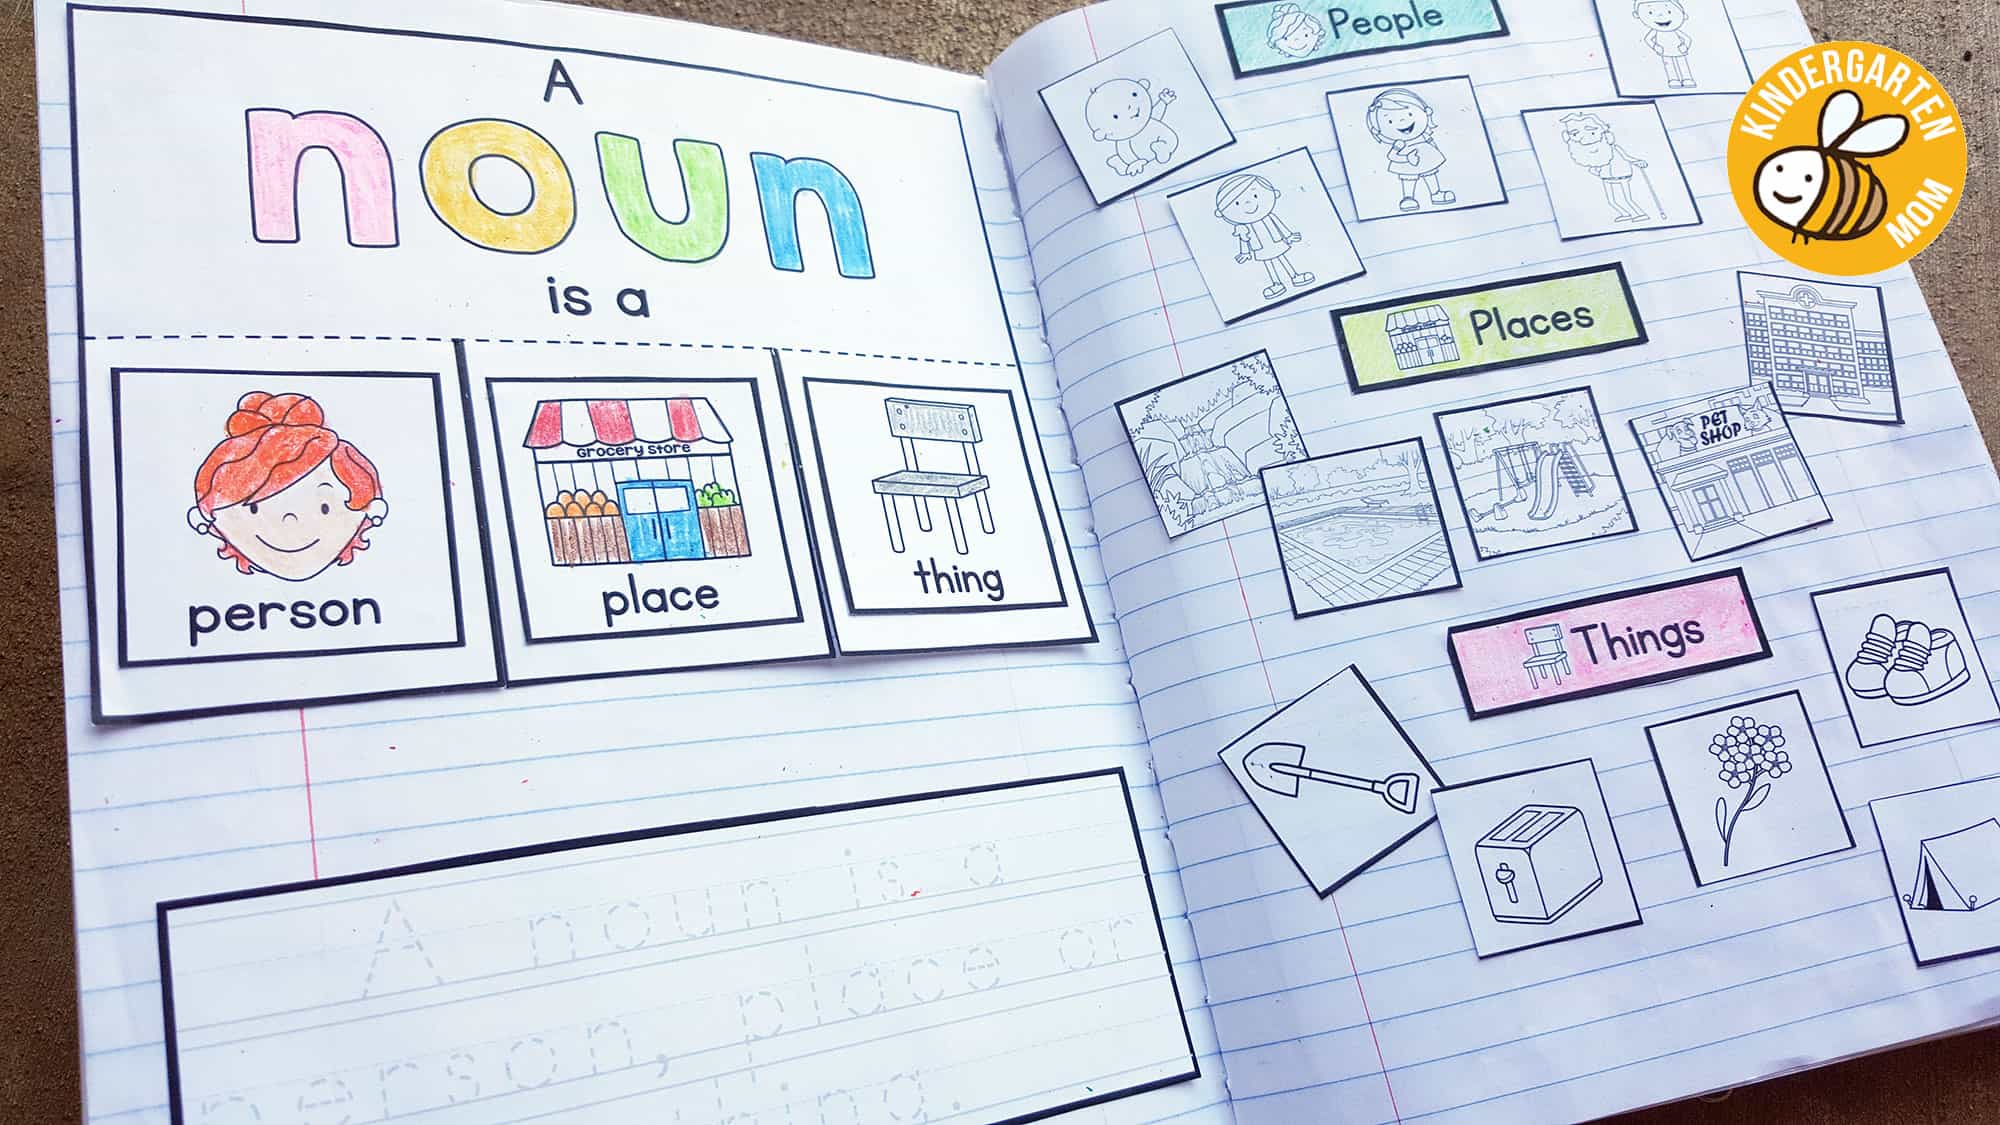 A
noun
is a
person
Grocery store
place
thing
A noun is a
person, place or
thing.
People
Places
PET
SHOP
Things
KINDERGARTEN
MOM